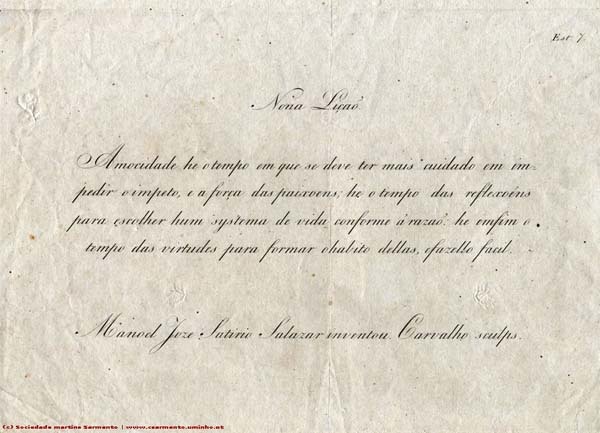 Est. 7.
Nona Liçaõ.
Amocidade he otempo em que se deve ter mais cuidado em im=
pedir oimpeto, e a força das paixoens; he o tempo das reflexoens
para escolher hum systema de vida conforme á razaõ: he emfim o
tempo das virtudes para formar ohabito dellas, efazello facil.
Manoel Joze Satirio Salazar inventou. Carvalho sculps.
(c) Sociedade martins Sarmento | www.csarmento.uminho.pt